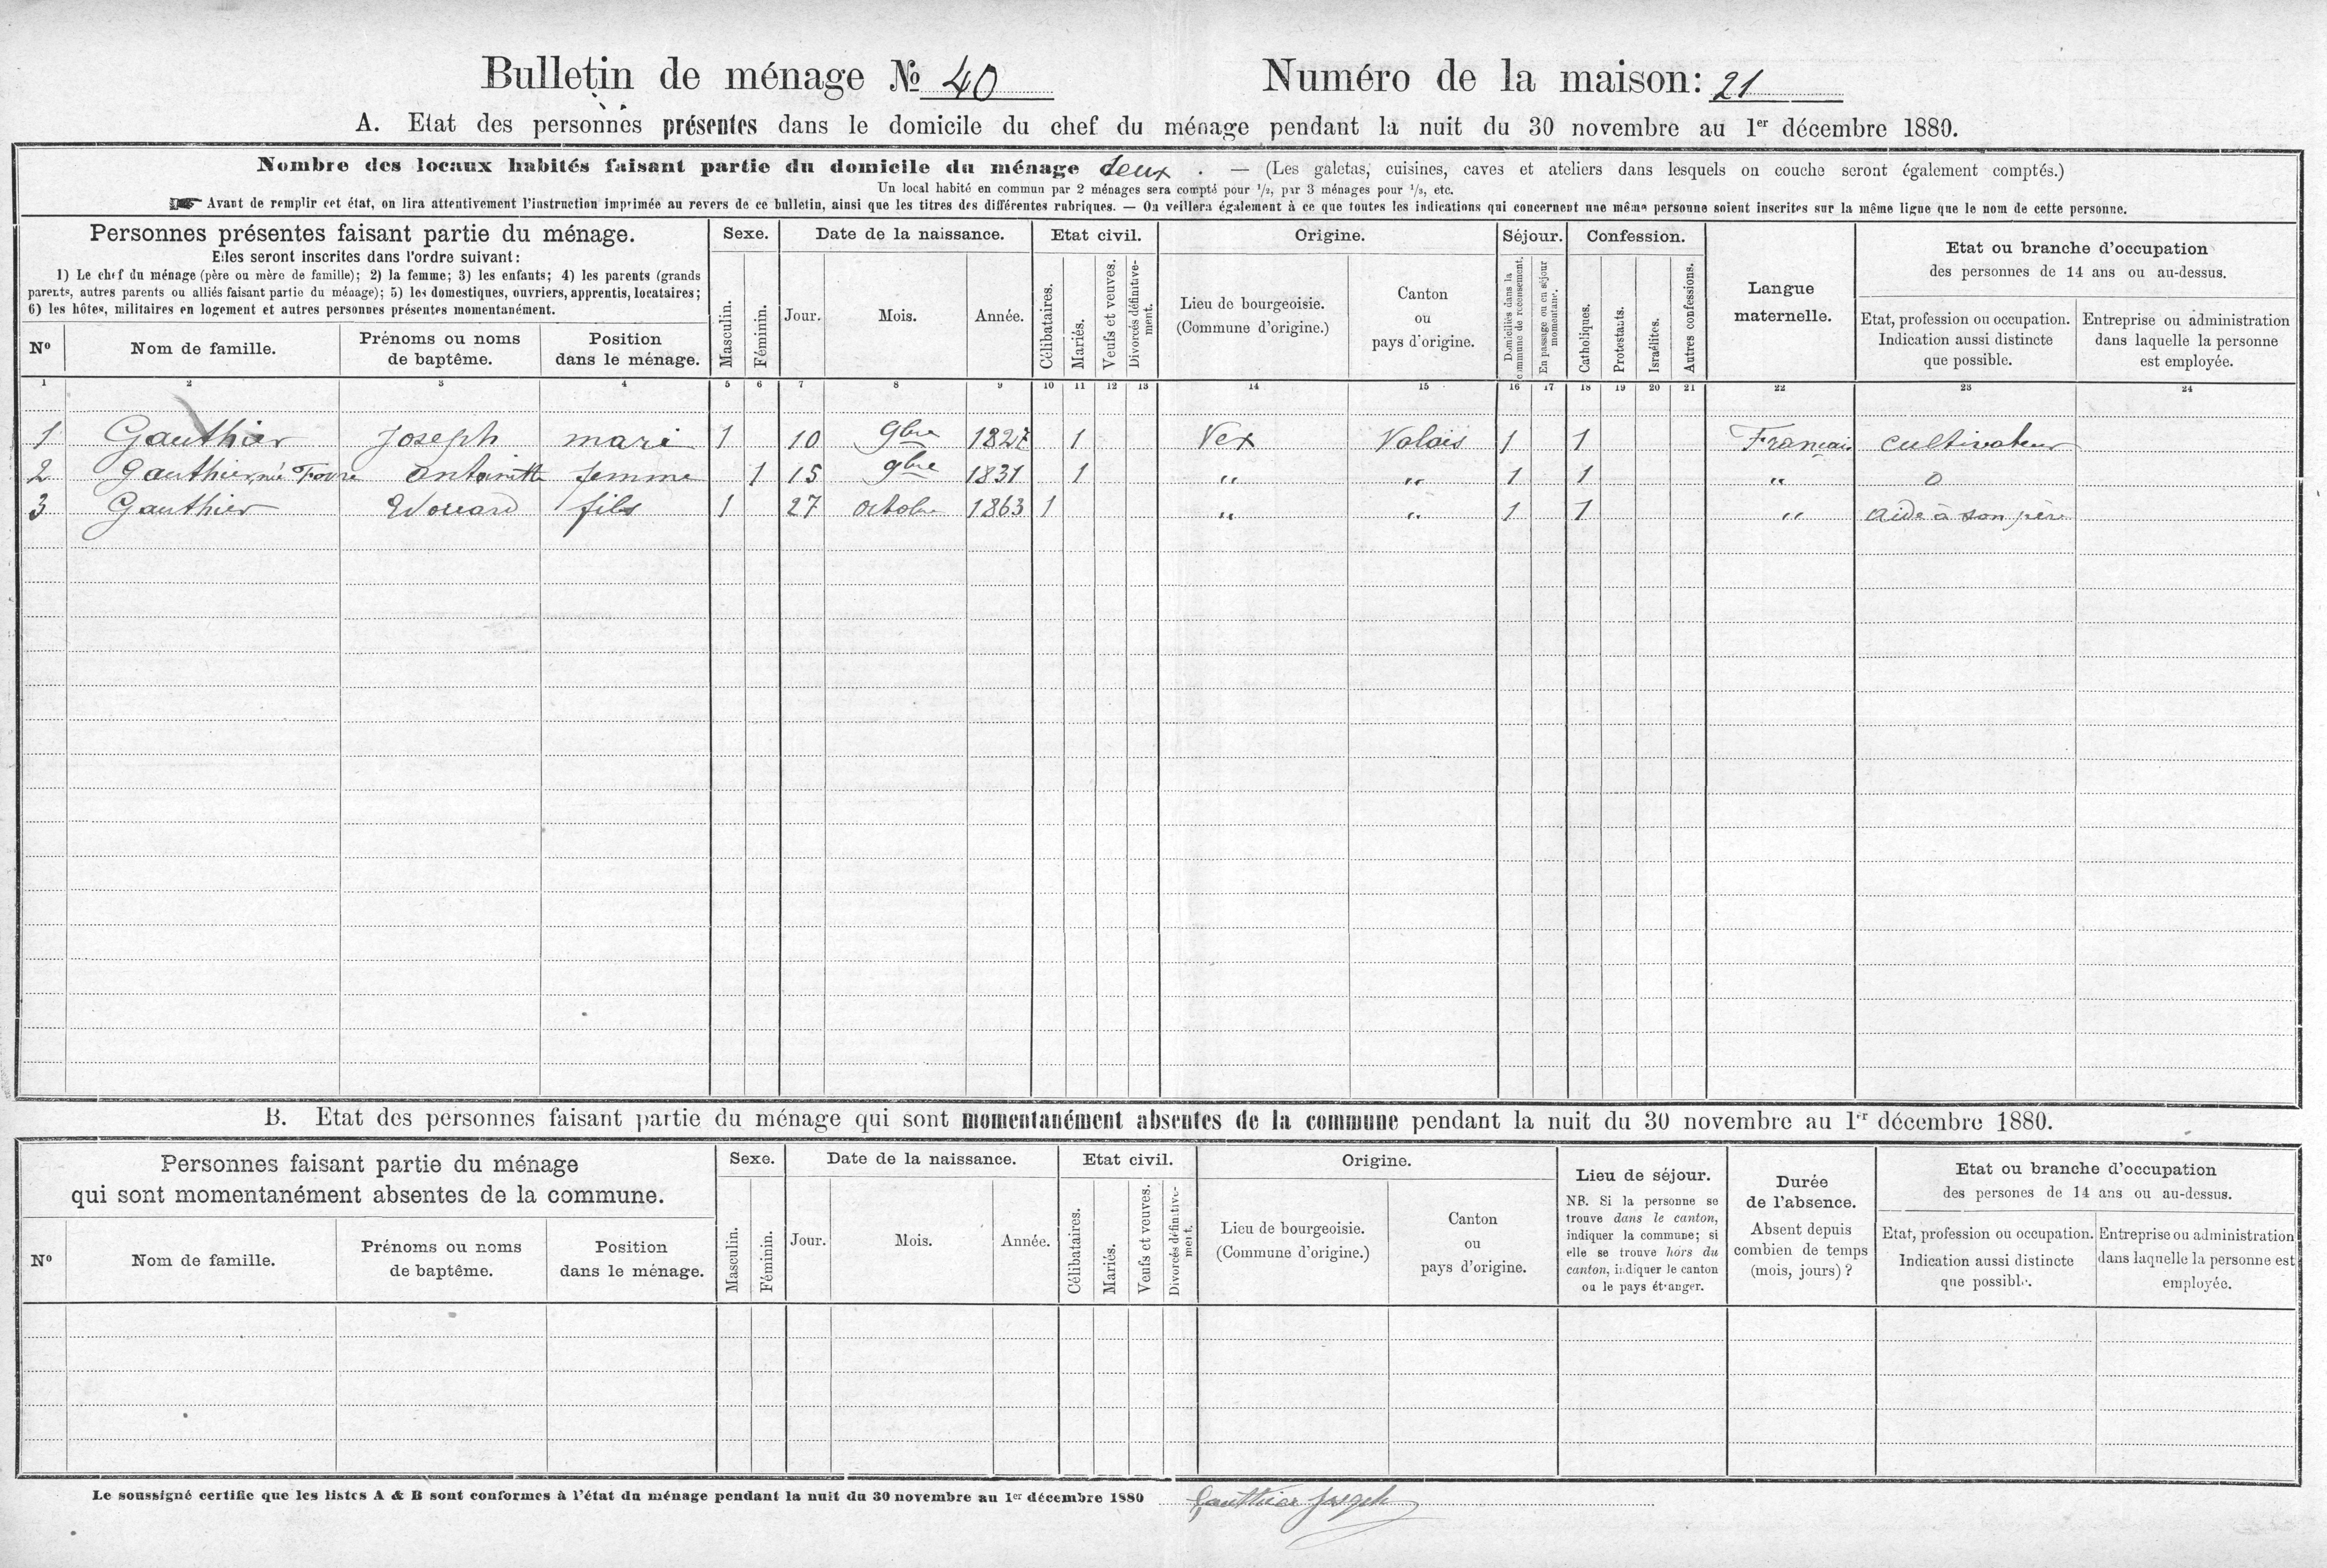 Bulletin de ménage № 40
Numéro de la maison: 21
A. Etat des personnes présentes dans le domicile du chef du ménage pendant la nuit du 30 novembre au 1er décembre 1880.
Nombre des locaux habités faisant partie du domicile du ménage deux . — (Les galetas, cuisines, caves et ateliers dans lesquels on couche seront également comptés.)
Un local habité en commun par 2 ménages sera compté pour 1/2, par 3 ménages pour 1/3, etc.
Avant de remplir cet état, on lira attentivement l'instruction imprimée au revers de ce bulletin, ainsi que les titres des différentes rubriques. — On veillera également à ce que toutes les indications qui concernent une même personne soient inscrites sur la même ligne que le nom de cette personne.
Personnes présentes faisant partie du ménage.
Elles seront inscrites dans l'ordre suivant:
1) Le chef du ménage (père ou mère de famille); 2) la femme; 3) les enfants; 4) les parents (grands
parents, autres parents ou alliés faisant partie du ménage); 5) les domestiques, ouvriers, apprentis, locataires;
6) les hôtes, militaires en logement et autres personnes présentes momentanément.
Nº
Nom de famille.
Prénoms ou noms
de baptême.
Position
dans le ménage.
Sexe.
Masculin.
Féminin.
Date de la naissance.
Jour.
Mois.
Année.
Etat civil.
Célibataires.
Mariés.
Veufs et veuves.
Divorcés définitive-
ment.
Origine.
Lieu de bourgeoisie.
(Commune d'origine.)
Canton
ou
pays d'origine.
Séjour.
Domiciliés dans la
commune de recensement.
En passage ou en séjour
momentané.
Confession.
Catholiques.
Protestants.
Israélites.
Autres confessions.
Langue
maternelle.
Etat ou branche d'occupation
des personnes de 14 ans ou au-dessus.
Etat, profession ou occupation.
Indication aussi distincte
que possible.
Entreprise ou administration
dans laquelle la personne
est employée.
1 2 3 4 5 6 7 8 9 10 11 12 13 14 15 16 17 18 19 20 21 22 23 24
1 Gauthier Joseph mari 1 10 9bre 1827 1 Vex Valais 1 1 Français cultivateur
2 Gauthier, né Favre antoinette femme 1 15 9bre 1831 1 " " 1 1 " 0
3 Gauthier Edouard fils 1 27 octobre 1863 1 " " 1 1 " aide à son père
B. Etat des personnes faisant partie du ménage qui sont momentanément absentes de la commune pendant la nuit du 30 novembre au 1er décembre 1880.
Personnes faisant partie du ménage
qui sont momentanément absentes de la commune.
Nº
Nom de famille.
Prénoms ou noms
de baptême.
Position
dans le ménage.
Sexe.
Masculin.
Féminin.
Date de la naissance.
Jour.
Mois.
Année.
Etat civil.
Célibataires.
Mariés.
Veufs et veuves.
Divorcés définitive-
ment.
Origine.
Lieu de bourgeoisie.
(Commune d'origine.)
Canton
ou
pays d'origine.
Lieu de séjour.
NB. Si la personne se
trouve dans le canton,
indiquer la commune; si
elle se trouve hors du
canton, indiquer le canton
ou le pays étranger.
Durée
de l'absence.
Absent depuis
combien de temps
(mois, jours)?
Etat ou branche d'occupation
des persones de 14 ans ou au-dessus.
Etat, profession ou occupation.
Indication aussi distincte
que possible.
Entreprise ou administration
dans laquelle la personne est
employée.
Le soussigné certifie que les listes A & B sont conformes à l'état du ménage pendant la nuit du 30 novembre au 1er décembre 1880 Gauthier Joseph